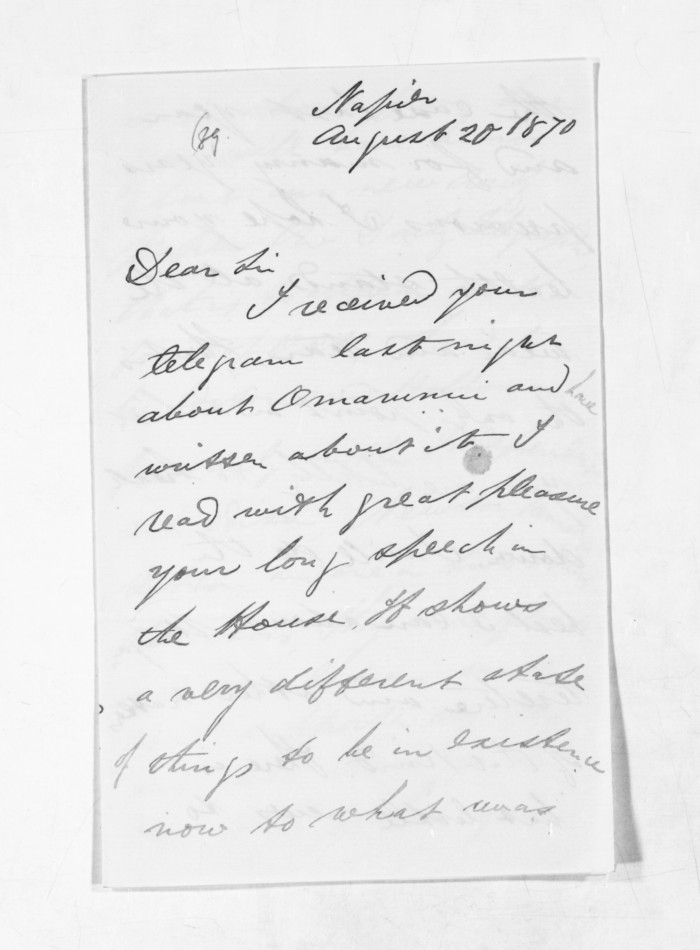 Napier
August 20 1870
(89.
Dear Sir
I received your
telegram last night
about Omarunui and have
written about it I
read with great pleasure
your long speech in
the House. It shows
a very different state
of things to be in existence
now to what was